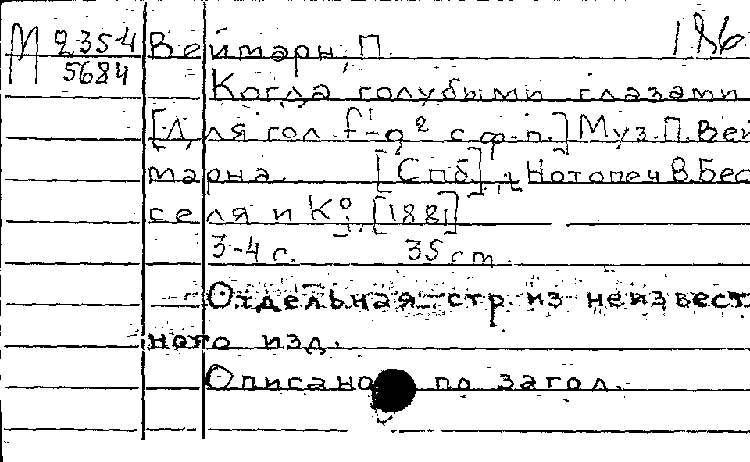 М 235-4 Веймарн, П. 186
5684
Когда голубыми глазами
[Для гол. f¹-g² с ф-п.] Муз. П. Вей
марна. [Спб], Нотопеч В. Бес
селя и К⁰, [1881]
3-4 с. 35 cm.
Отдельная стр. из неизвест
ного изд.
Описано по загол.